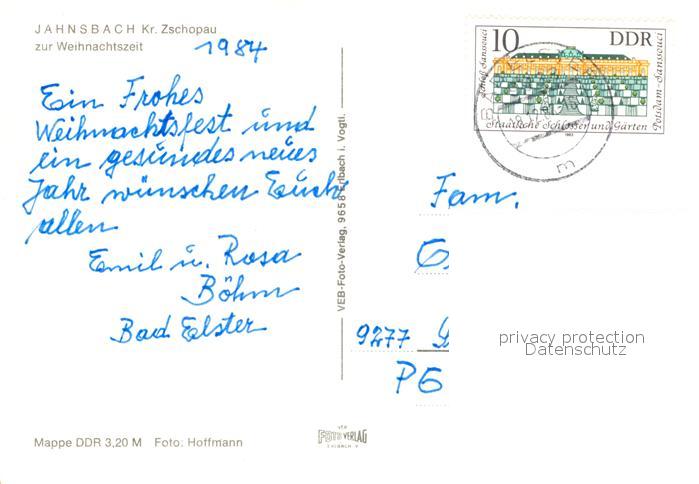 JAHNSBACH Kr. Zschopau
zur Weihnachtszeit
1984
Ein Frohes
Weihnachtsfest und
ein gesundes neues
Jahr wünschen Euch
allen
Emil u. Rosa
Böhm
Bad Elster
Mappe DDR 3,20 M Foto: Hoffmann
VEB-Foto-Verlag, 9658 Erlbach i. Vogtl.
VEB
FOTO VERLAG
ERLBACH V
10 DDR
Schloß Sanssouci
Potsdam-Sanssouci
Staatliche Schlösser und Gärten
1983
m
Fam.
G
9277
PG
privacy protection
Datenschutz